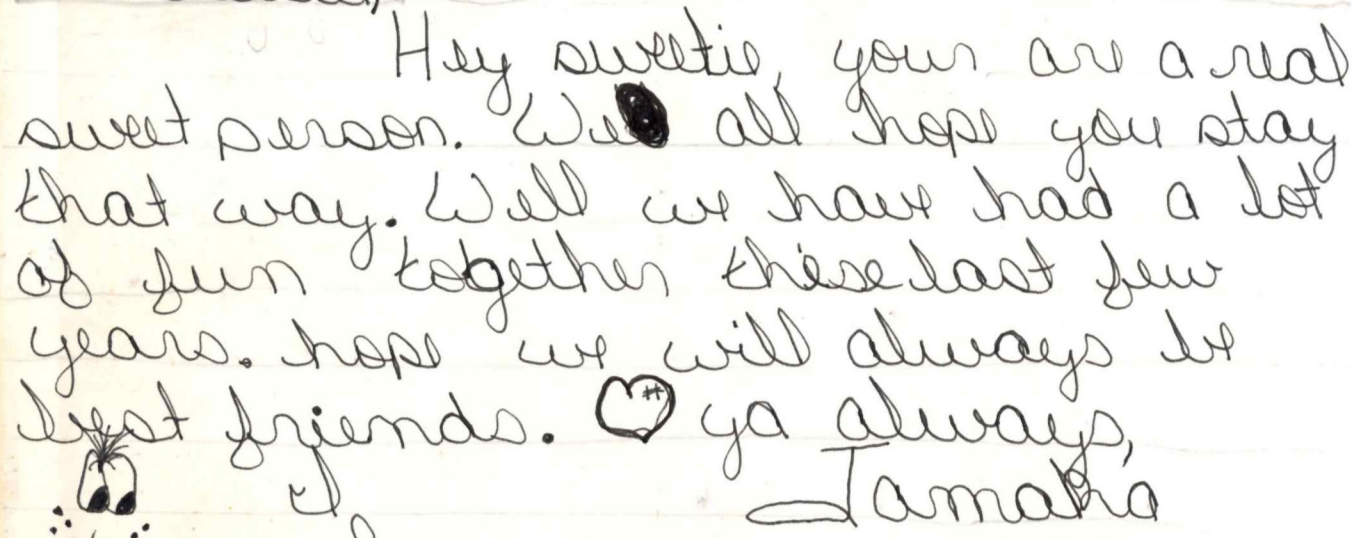 Hey sweetie, your are a real
sweet person. We all hope you stay
that way. Well we have had a lot
of fun together these last few
years. hope we will always be
best friends. ya always,
Tamaka